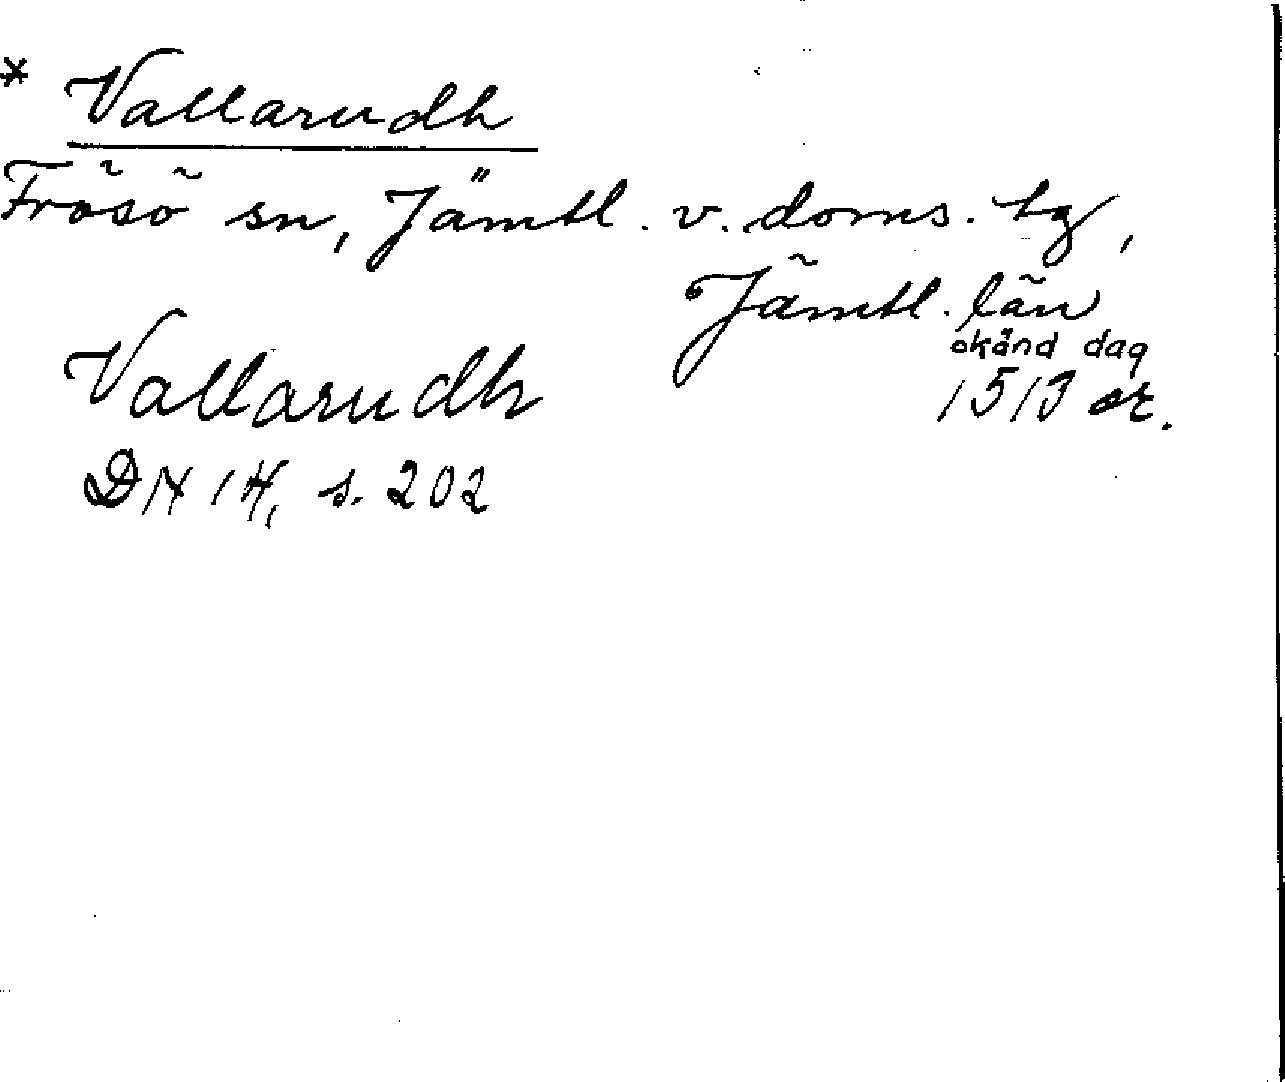 * Vallarudh
Frösö sn, Jämtl. v. doms. tg,
Jämtl. län
okänd dag
Vallarudh 1513 or.
DN 14, s. 202